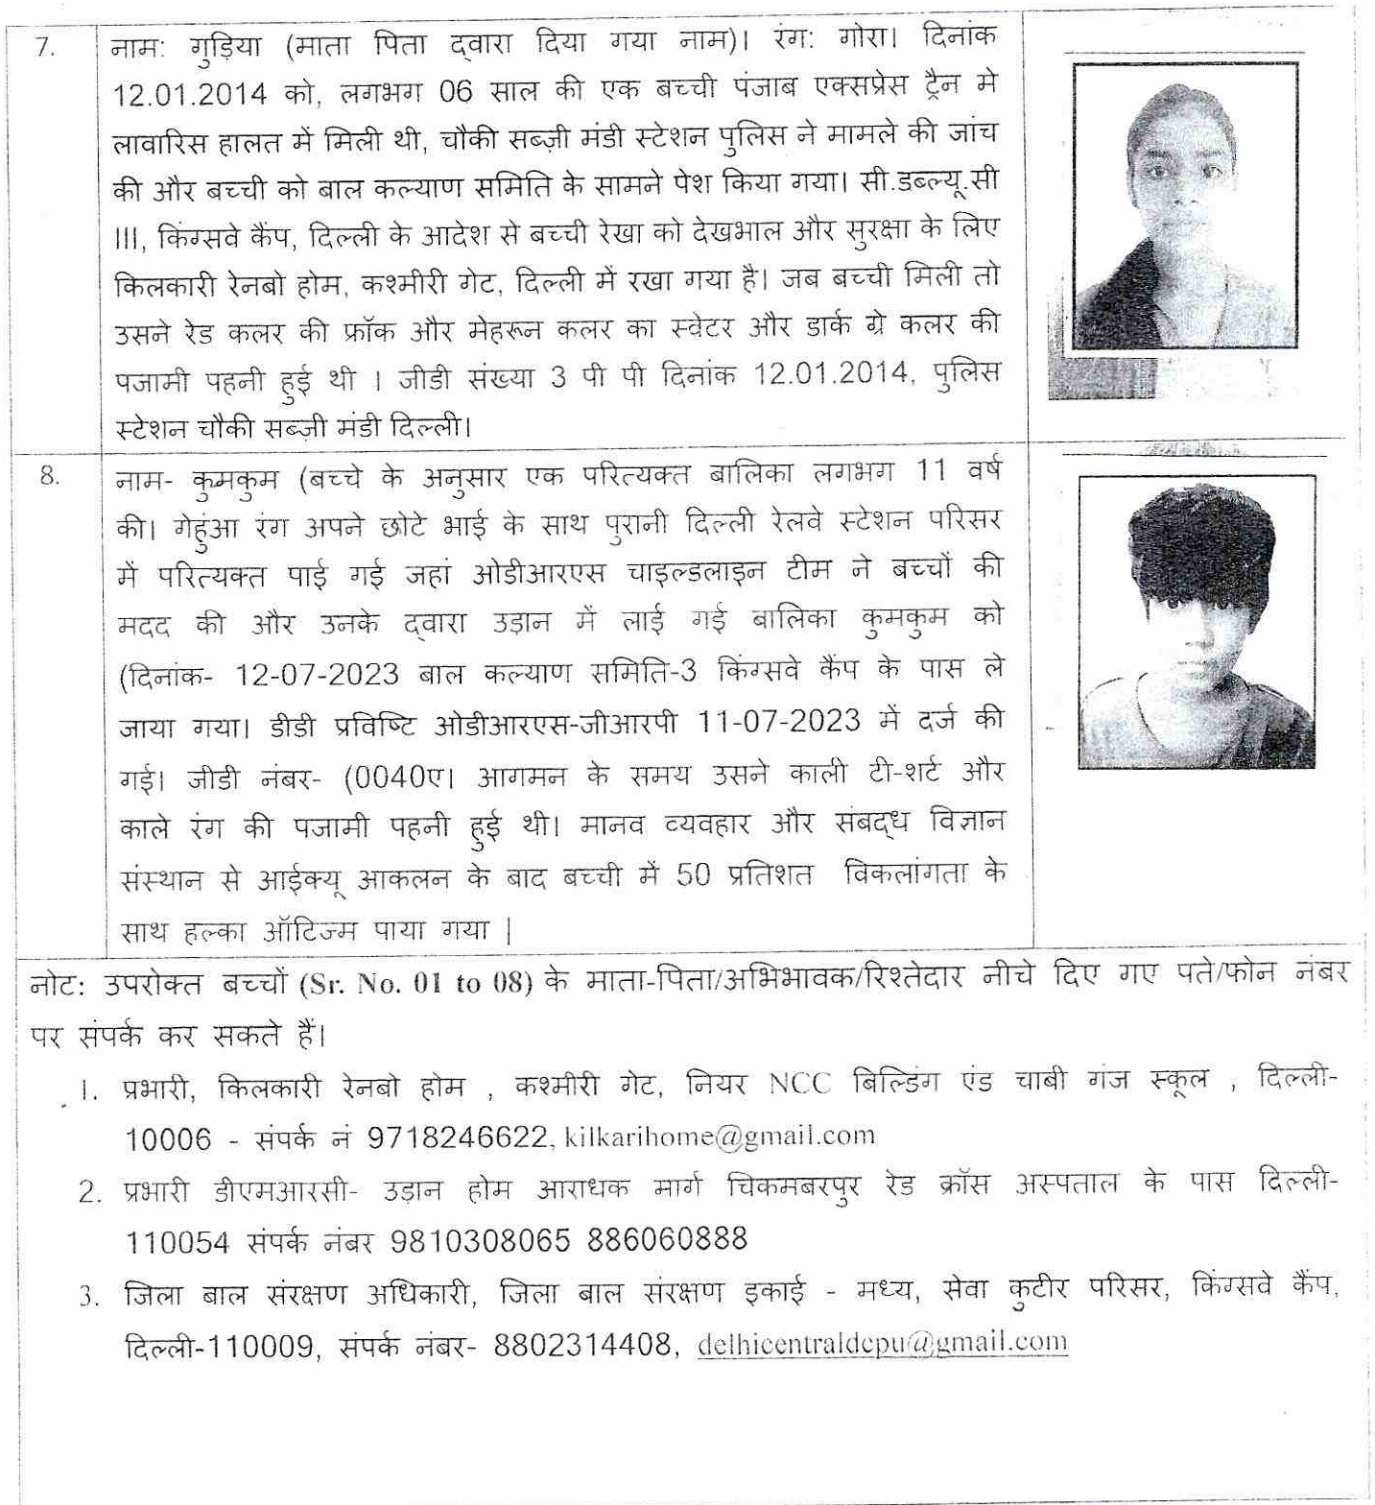 7.
नाम: गुड़िया (माता पिता द्वारा दिया गया नाम)। रंग: गोरा। दिनांक
12.01.2014 को, लगभग 06 साल की एक बच्ची पंजाब एक्सप्रेस ट्रैन मे
लावारिस हालत में मिली थी, चौकी सब्ज़ी मंडी स्टेशन पुलिस ने मामले की जांच
की और बच्ची को बाल कल्याण समिति के सामने पेश किया गया। सी.डब्ल्यू.सी
III, किंग्सवे कैंप, दिल्ली के आदेश से बच्ची रेखा को देखभाल और सुरक्षा के लिए
किलकारी रेनबो होम, कश्मीरी गेट, दिल्ली में रखा गया है। जब बच्ची मिली तो
उसने रेड कलर की फ्रॉक और मेहरून कलर का स्वेटर और डार्क ग्रे कलर की
पजामी पहनी हुई थी । जीडी संख्या 3 पी पी दिनांक 12.01.2014, पुलिस
स्टेशन चौकी सब्ज़ी मंडी दिल्ली।
8.
नाम- कुमकुम (बच्चे के अनुसार एक परित्यक्त बालिका लगभग 11 वर्ष
की। गेहुंआ रंग अपने छोटे भाई के साथ पुरानी दिल्ली रेलवे स्टेशन परिसर
में परित्यक्त पाई गई जहां ओडीआरएस चाइल्डलाइन टीम ने बच्चों की
मदद की और उनके द्वारा उड़ान में लाई गई बालिका कुमकुम को
(दिनांक- 12-07-2023 बाल कल्याण समिति-3 किंग्सवे कैंप के पास ले
जाया गया। डीडी प्रविष्टि ओडीआरएस-जीआरपी 11-07-2023 में दर्ज की
गई। जीडी नंबर- (0040ए। आगमन के समय उसने काली टी-शर्ट और
काले रंग की पजामी पहनी हुई थी। मानव व्यवहार और संबद्ध विज्ञान
संस्थान से आईक्यू आकलन के बाद बच्ची में 50 प्रतिशत विकलांगता के
साथ हल्का ऑटिज्म पाया गया |
नोट: उपरोक्त बच्चों (Sr. No. 01 to 08) के माता-पिता/अभिभावक/रिश्तेदार नीचे दिए गए पते/फोन नंबर
पर संपर्क कर सकते हैं।
1. प्रभारी, किलकारी रेनबो होम , कश्मीरी गेट, नियर NCC बिल्डिंग एंड चाबी गंज स्कूल , दिल्ली-
10006 - संपर्क नं 9718246622, kilkarihome@gmail.com
2. प्रभारी डीएमआरसी- उड़ान होम आराधक मार्ग चिकमबरपुर रेड क्रॉस अस्पताल के पास दिल्ली-
110054 संपर्क नंबर 9810308065 886060888
3. जिला बाल संरक्षण अधिकारी, जिला बाल संरक्षण इकाई - मध्य, सेवा कुटीर परिसर, किंग्सवे कैंप,
दिल्ली-110009, संपर्क नंबर- 8802314408, delhicentraldcpu@gmail.com